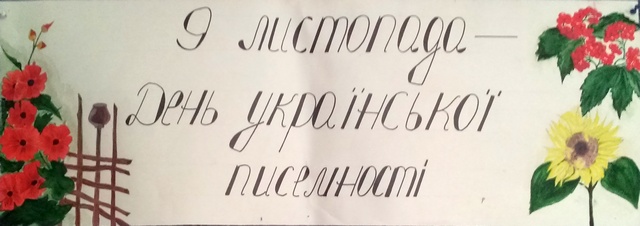 9 листопада —
День української
писемності